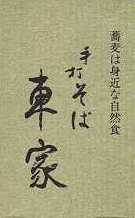 蕎麦は身近な自然食
手打そば
車家